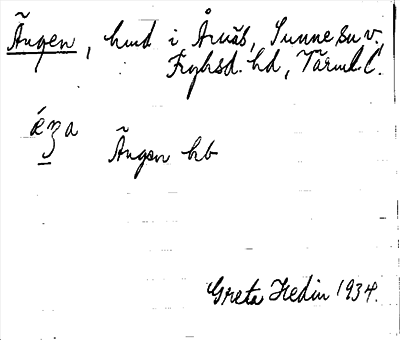 Ängen, hmd i Årnäs, Sunne sn v.
Fryksd. hd, Värml. l.
Ängen hb
Greta Hedin 1934.